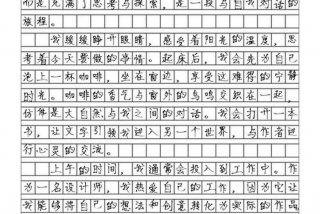 形是充满了思考与探索，是一段与自我对话的
旅程。
我缓缓睁开眼睛，感受着阳光的温度，思
考着今天要做的事情。起床后，我会先为自己
泡上一杯咖啡，坐在窗边，享受这难得的宁静
时光。咖啡的香气与窗外的鸟鸣交织在一起，
仿佛是大自然与我之间的对话。我会打开一本
书，让文字引领我进入另一个世界，与作者进
行心灵的交流。
上午的时间，我通常会投入到工作中。作
为一名设计师，我热爱自己的工作，因为它让
我能够将自己的想法和创意转化为实际的作品